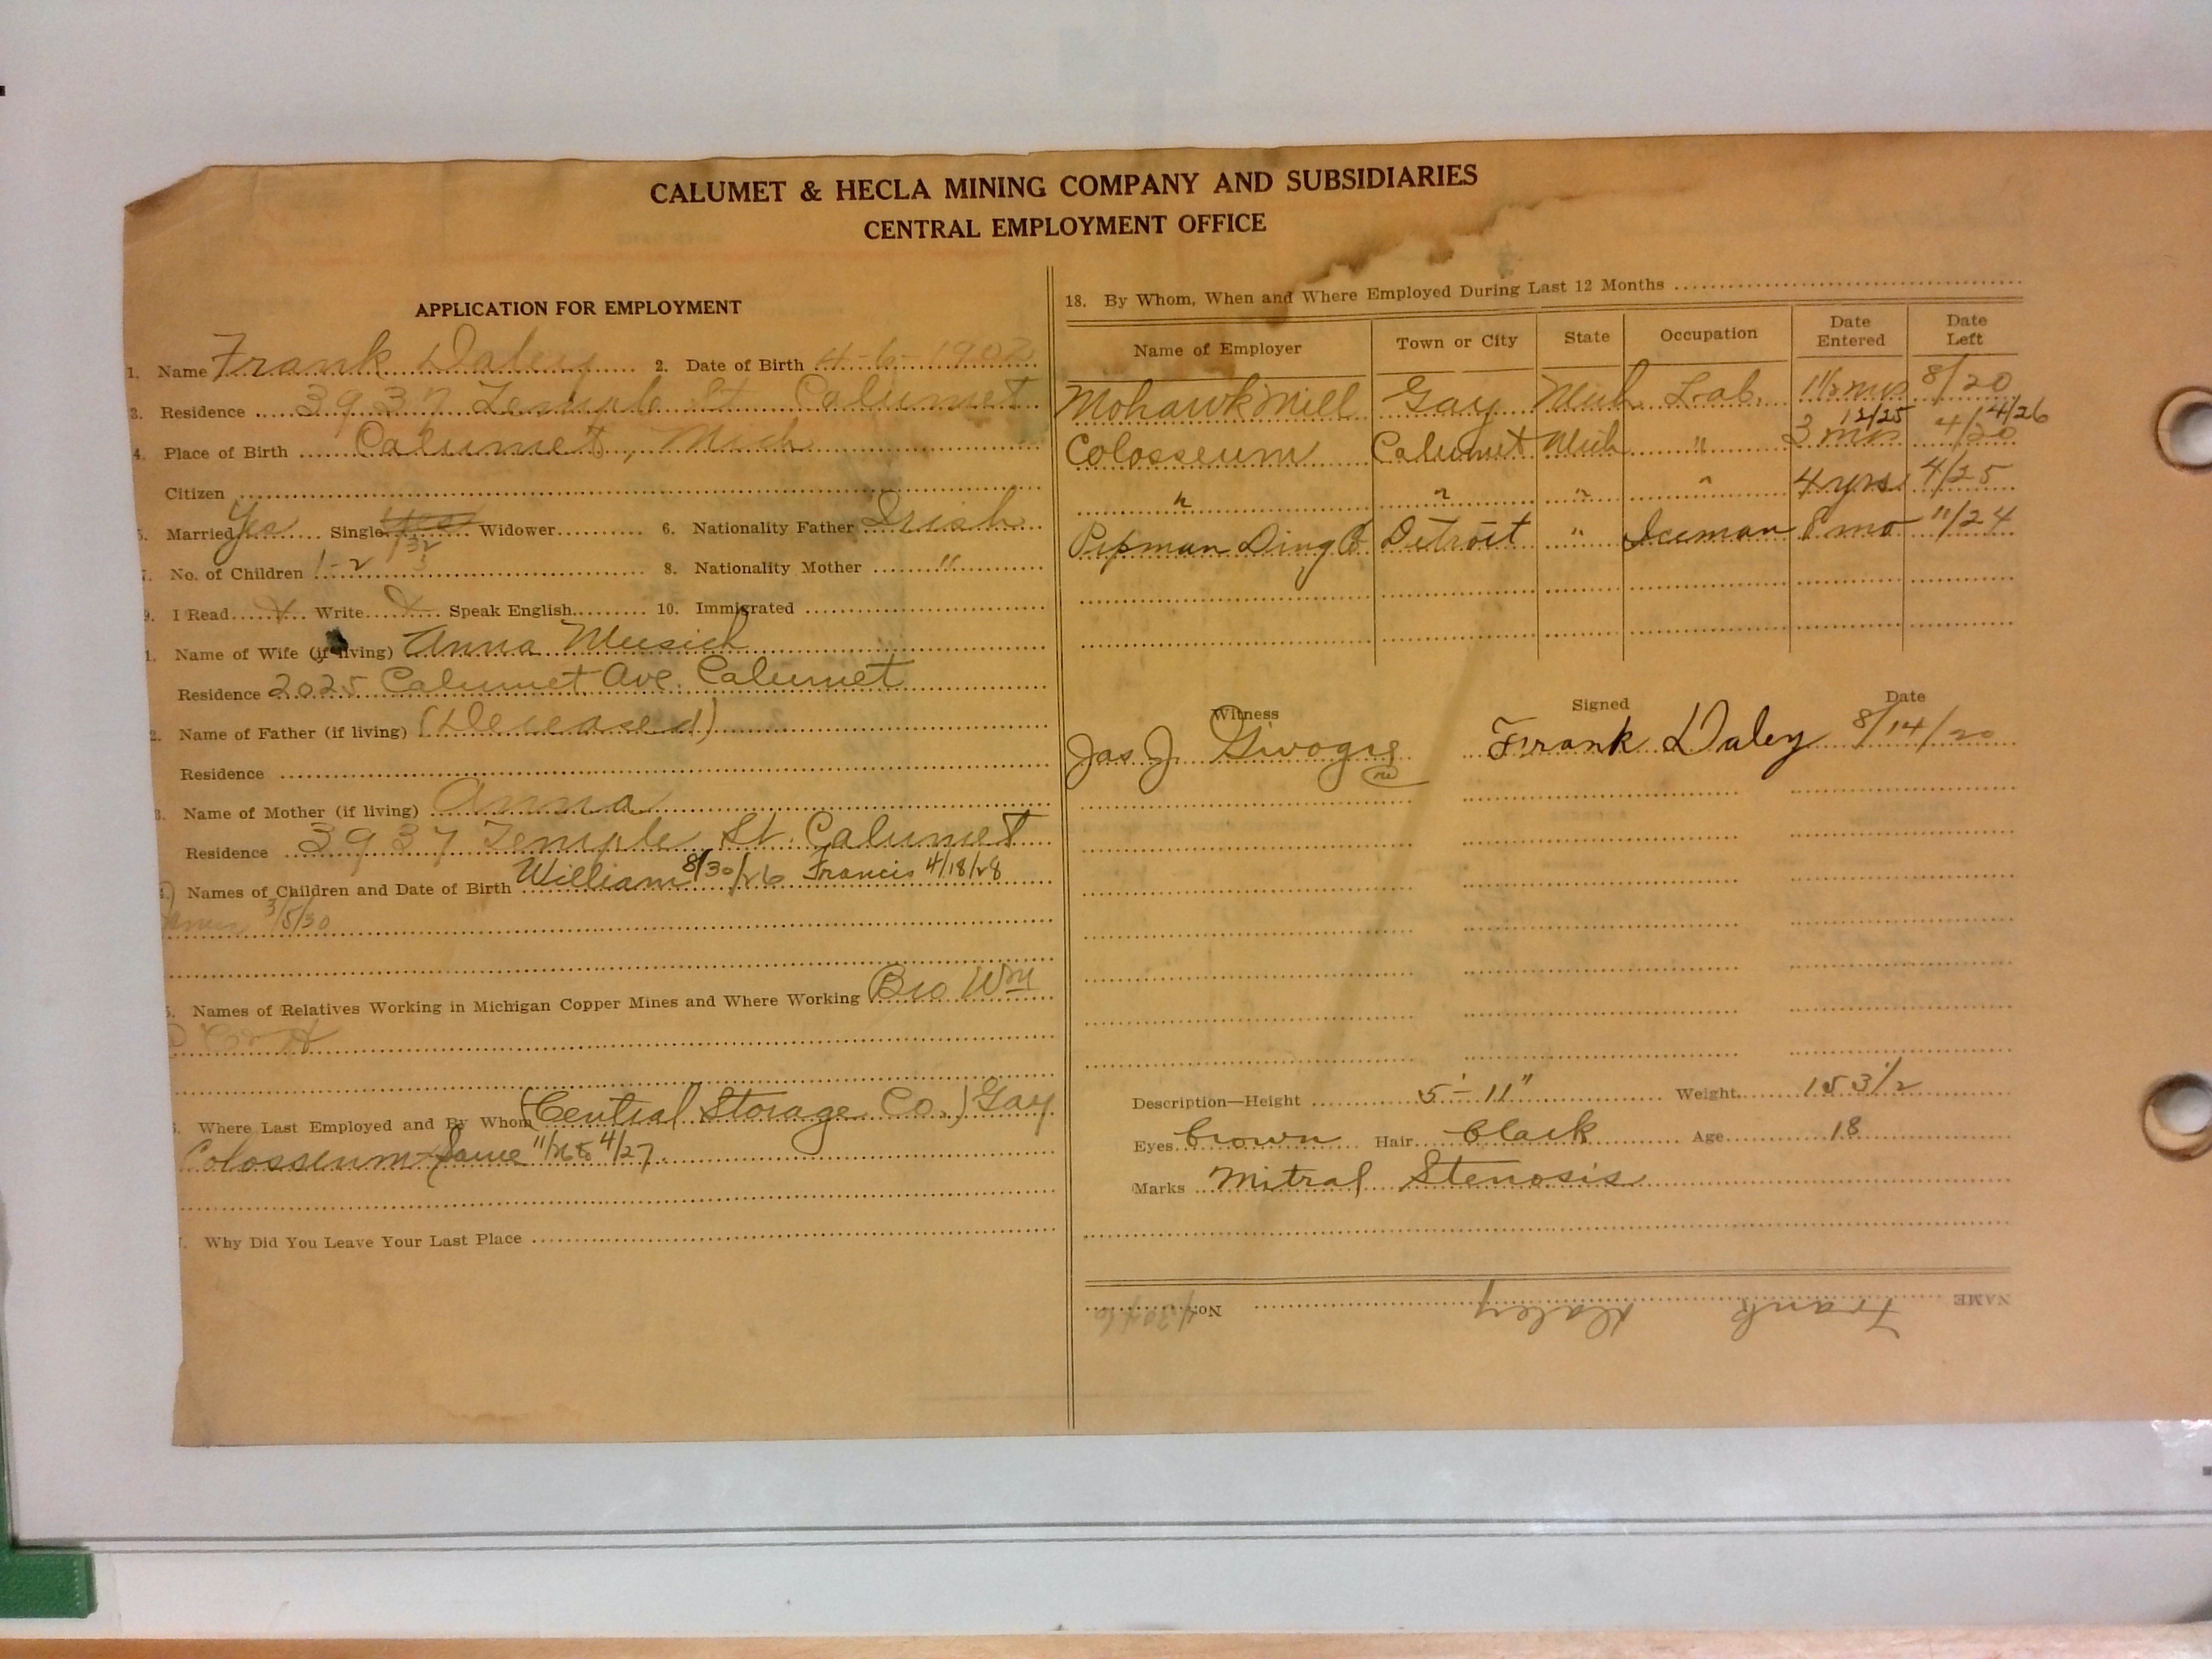 CALUMET & HECLA MINING COMPANY AND SUBSIDIARIES
CENTRAL EMPLOYMENT OFFICE
APPLICATION FOR EMPLOYMENT
1. Name Frank Daley 2. Date of Birth 4-6-1902
3. Residence 3937 Temple St. Calumet
4. Place of Birth Calumet, Mich
Citizen
5. Married Yes Single Yes Widower 6. Nationality Father Irish
7. No. of Children 1-2 3 8. Nationality Mother "
9. I Read X Write X Speak English 10. Immigrated
1. Name of Wife (if living) Anna Musich
Residence 2025 Calumet Ave. Calumet
2. Name of Father (if living) (Deceased)
Residence
3. Name of Mother (if living) Anna
Residence 3937 Temple St. Calumet
Names of Children and Date of Birth William 8/30/26 Francis 4/18/28
3/5/30
5. Names of Relatives Working in Michigan Copper Mines and Where Working Bro Wm
C & H
Where Last Employed and By Whom (Central Storage Co.) Gay
Colosseum Same 11/26 to 4/27
Why Did You Leave Your Last Place
18. By Whom, When and Where Employed During Last 12 Months
Name of Employer Town or City State Occupation Date Entered Date Left
Mohawk Mill Gay Mich Lab. 1 1/2 mos 8/20
12/25 4/26
Colosseum Calumet Mich " 3 mos 4/20
" " " " 4 yrs 4/25
Detroit " Iceman 8 mo 11/24
Witness Signed Date
Jas J. Frank Daley 8/14/20
Description—Height 5'-11" Weight 153 1/2
Eyes brown Hair black Age 18
Marks Mitral Stenosis
NAME Frank Daley No.